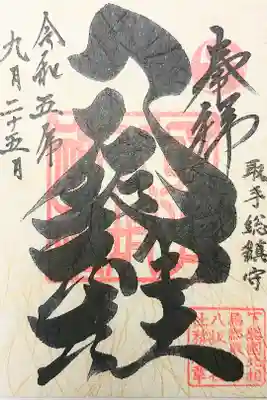 奉拝
取手総鎮守
八坂神社
令和五年
九月二十五日